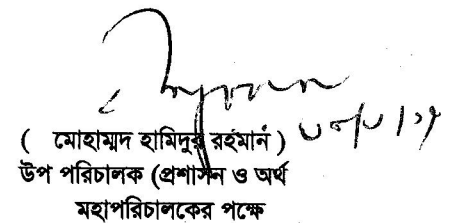 ( মোহাম্মদ হামিদুর রহমান )
উপ পরিচালক (প্রশাসন ও অর্থ
মহাপরিচালকের পক্ষে